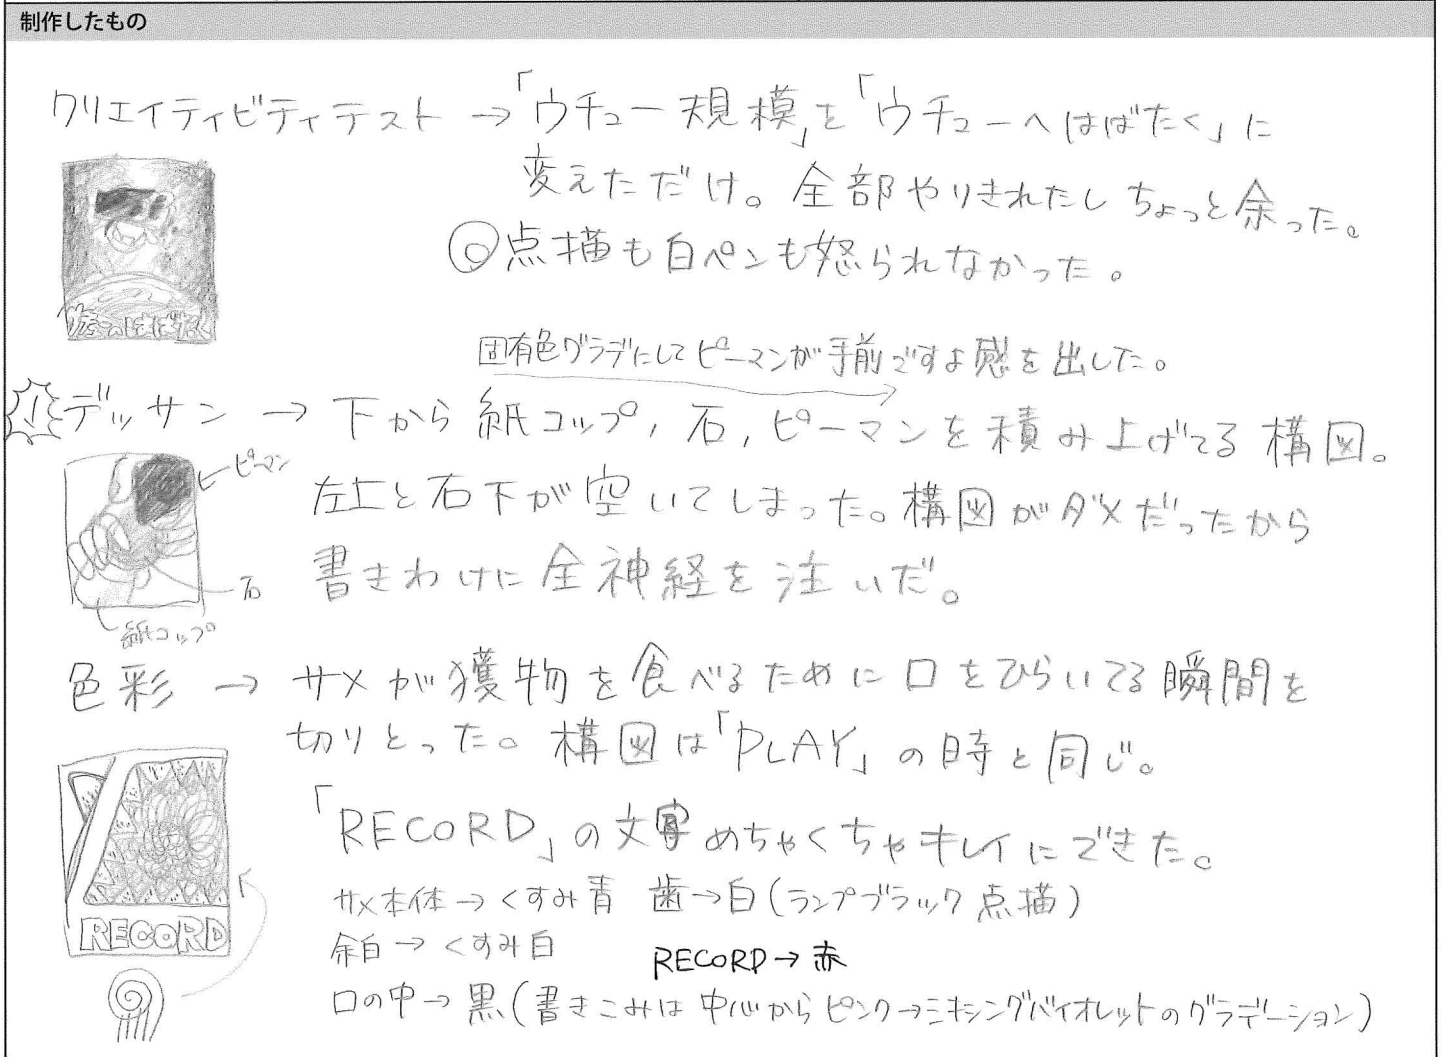 制作したもの
クリエイティビティテスト →「ウチュー規模」を「ウチューへはばたく」に
変えただけ。全部やりきれたしちょっと余った。
◎点描も白ペンも怒られなかった。
ウチューへはばたく
固有色グラデにしてピーマンが手前ですよ感を出した。
! デッサン → 下から紙コップ, 石, ピーマンを積み上げてる構図。
←ピーマン
左上と右下が空いてしまった。構図がダメだったから
書きわけに全神経を注いだ。
石
紙コップ
色彩 → サメが獲物を食べるために口をひらいてる瞬間を
切りとった。構図は「PLAY」の時と同じ。
「RECORD」の文字めちゃくちゃキレイにできた。
サメ本体→くすみ青 歯→白(ランプブラック点描)
RECORD
余白→くすみ白
RECORD→赤
口の中→黒(書きこみは中心からピンク→ミキシングバイオレットのグラデーション)